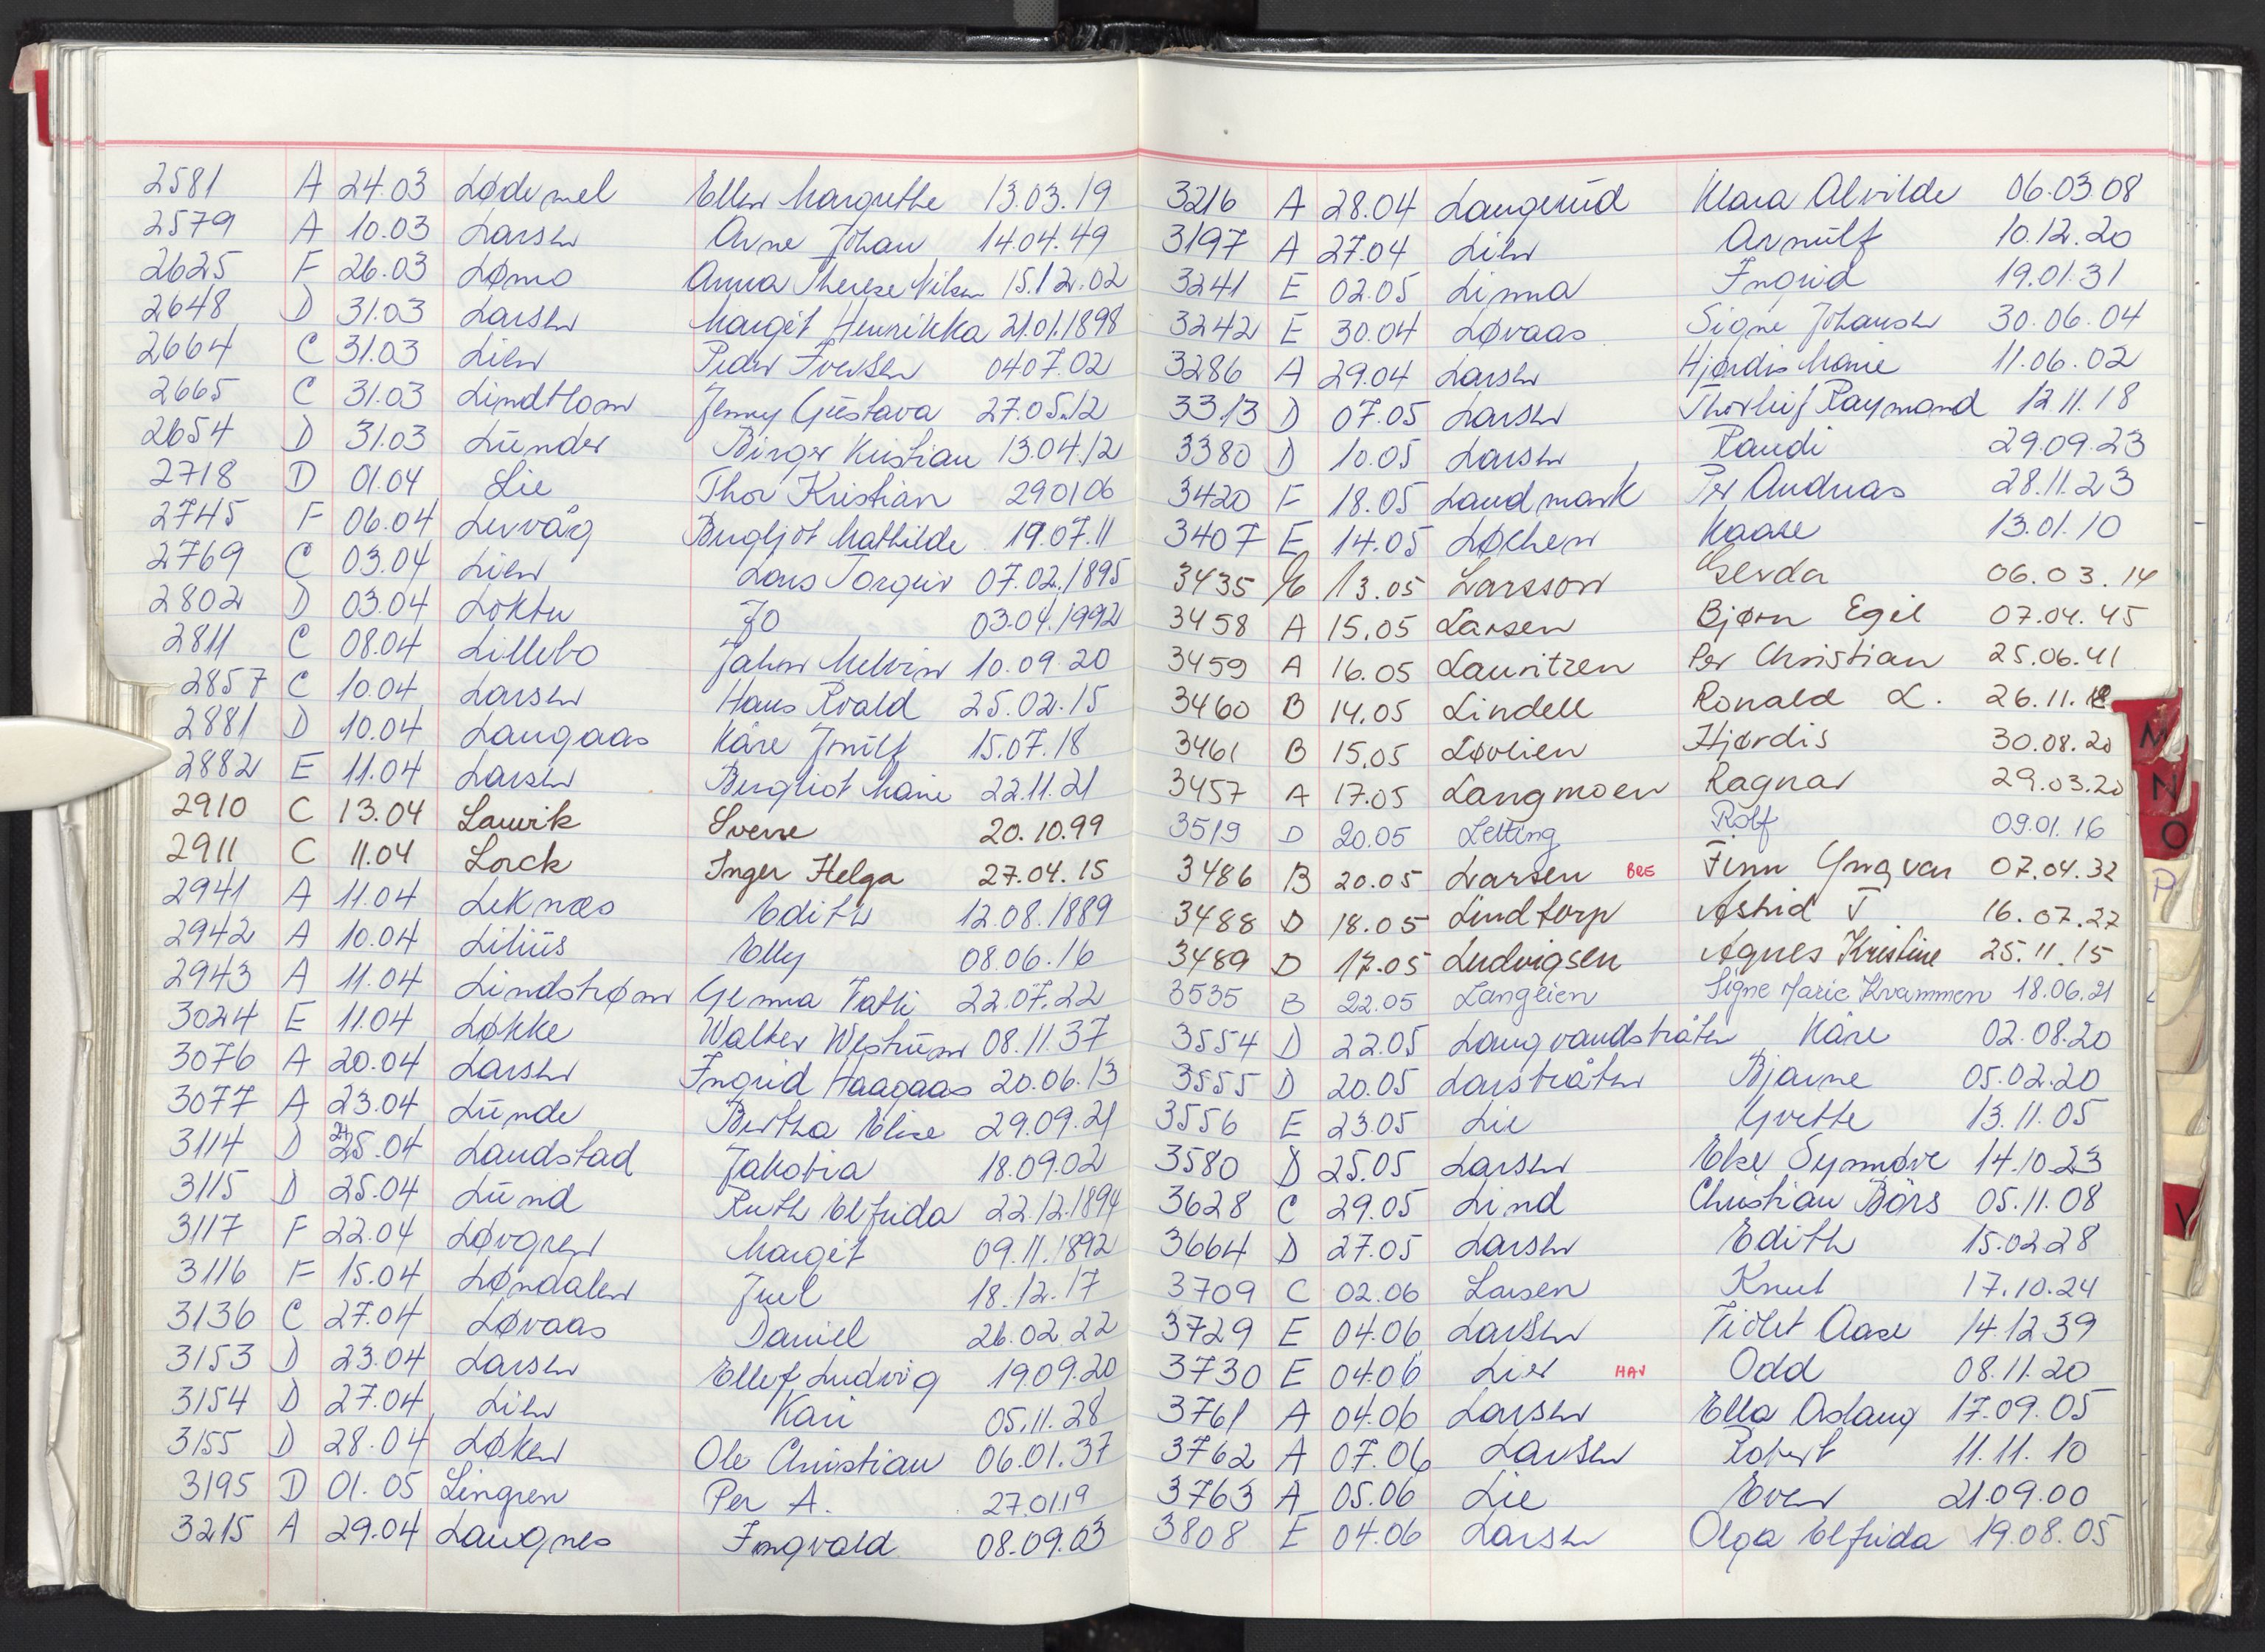 2581 A 24.03 Lødemel Ellen Margrethe 13.03.19
2579 A 10.03 Larsen Arne Johan 14.04.49
2625 F 26.03 Lømo Anna Therese Nilsen 15.12.02
2648 D 31.03 Larsen Margit Henrikka 21.01.1898
2664 C 31.03 Lien Peder Iversen 04 07.02
2665 C 31.03 Lindtlom Jenny Gustava 27.05.12
2654 D 31.03 Lunder Birger Kristian 13.04.12
2718 D 01.04 Lie Thor Kristian 29 01 06
2745 F 06.04 Lervåg Bergljot Mathilde 19.07.11
2769 C 03.04 Lien Lars Torgeir 07.02.1895
2802 D 03.04 Løkten Jo 03.04.1992
2811 C 08.04 Lillebo Jahn Melvin 10.09.20
2857 C 10.04 Larsen Hans Roald 25.02.15
2881 D 10.04 Langaas Kåre Jnulf 15.07.18
2882 E 11.04 Larsen Bergliot Marie 22.11.21
2910 C 13.04 Laurik Sverre 20.10.99
2911 C 11.04 Lorck Inger Helga 27.04.15
2941 A 11.04 Leknæs Edith 12.08.1889
2942 A 10.04 Lilius Elly 08.06.16
2943 A 11.04 Lindstrøm Gemma Fatti 22.07.22
3024 E 11.04 Løkke Walter Westrum 08.11.37
3076 A 20.04 Larsen Ingrid Haagaas 20.06.13
3077 A 23.04 Lunde Bertha Elise 29.09.21
3114 D 25.04 Landstad Jakobia 18.09.02
3115 D 25.04 Lund Ruth Elfrida 22.12.1894
3117 F 22.04 Løvgren Margit 09.11.1892
3116 F 15.04 Løndalen Juel 18.12.17
3136 C 27.04 Løvaas Daniel 26.02.22
3153 D 23.04 Larsen Ellef Ludvig 19.09.20
3154 D 27.04 Lien Kari 05.11.28
3155 D 28.04 Løken Ole Christian 06.01.37
3195 D 01.05 Lingren Per A. 27.01.19
3215 A 29.04 Laugnes Ingvald 08.09.03
3216 A 28.04 Langerud Klara Alvilde 06.03.08
3197 A 27.04 Lien Arnulf 10.12.20
3241 E 02.05 Linna Ingrid 19.01.31
3242 E 30.04 Løvaas Signe Johansen 30.06.04
3286 A 29.04 Larsen Hjørdis Marie 11.06.02
3313 D 07.05 Larsen Thorleif Raymond 12.11.18
3380 D 10.05 Larsen Randi 29.09.23
3420 F 18.05 Landmark Per Andreas 28.11.23
3407 E 14.05 Løchen Kaare 13.01.10
3435 13.05 Larsson Gerda 06.03.14
3458 A 15.05 Larsen Bjørn Egil 07.04.45
3459 A 16.05 Lauritzen Per Christian 25.06.41
3460 B 14.05 Lindell Ronald L. 26.11.
3461 B 15.05 Løvlien Hjørdis 30.08.20
3457 A 17.05 Langmoen Ragnar 29.03.20
3519 D 20.05 Letting Rolf 09.01.16
3486 B 20.05 Larsen BRE Finn Yngvar 07.04.32
3488 D 18.05 Lindtorp Astrid T 16.07.27
3489 D 17.05 Ludvigsen Agnes Kristine 25.11.15
3535 B 22.05 Langeien Signe Marie Kvammen 18.06.21
3554 D 22.05 Langvandsbråten Kåre 02.08.20
3555 D 20.05 Larsbråten Bjarne 05.02.20
3556 E 23.05 Lie Yvette 13.11.05
3580 D 25.05 Larsen Else Synnøve 14.10.23
3628 C 29.05 Lind Christian Börs 05.11.08
3664 D 27.05 Larsen Edith 15.02.28
3709 C 02.06 Larsen Knut 17.10.24
3729 E 04.06 Larsen Fiolet Aase 14.12.39
3730 E 04.06 Lier HAV Odd 08.11.20
3761 A 04.06 Larsen Ella Aslaug 17.09.05
3762 A 07.06 Larsen Robert 11.11.10
3763 A 05.06 Lie Even 21.09.00
3808 E 04.06 Larsen Olga Elfrida 19.08.05
M
N
O
P
V